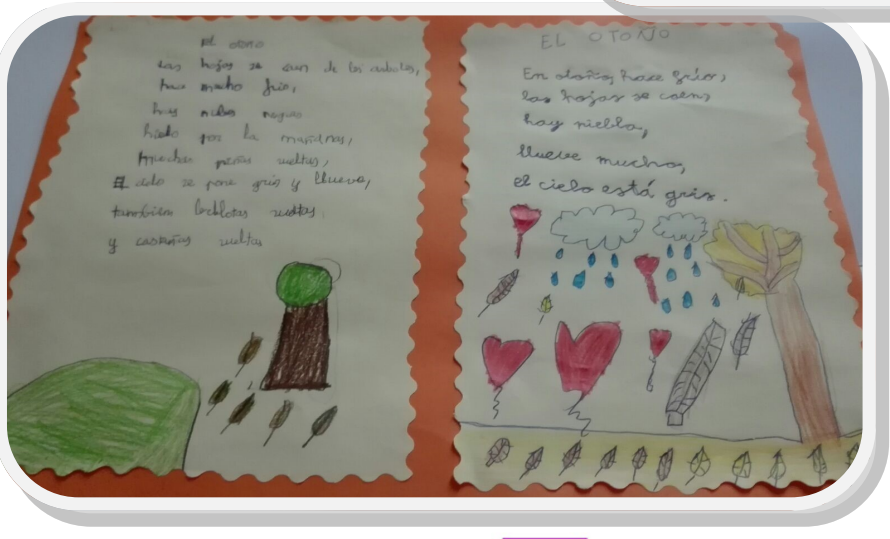 El otoño
Las hojas se caen de los arboles,
hace mucho frio,
hay nubes negras
hielo por la mañanas,
muchas peñas sueltas,
El cielo se pone gris y llueve,
tambien bellotas sueltas
y castañas sueltas
EL OTOÑO
En otoño, hace frío,
las hojas se caen,
hay niebla,
llueve mucho,
el cielo está gris.